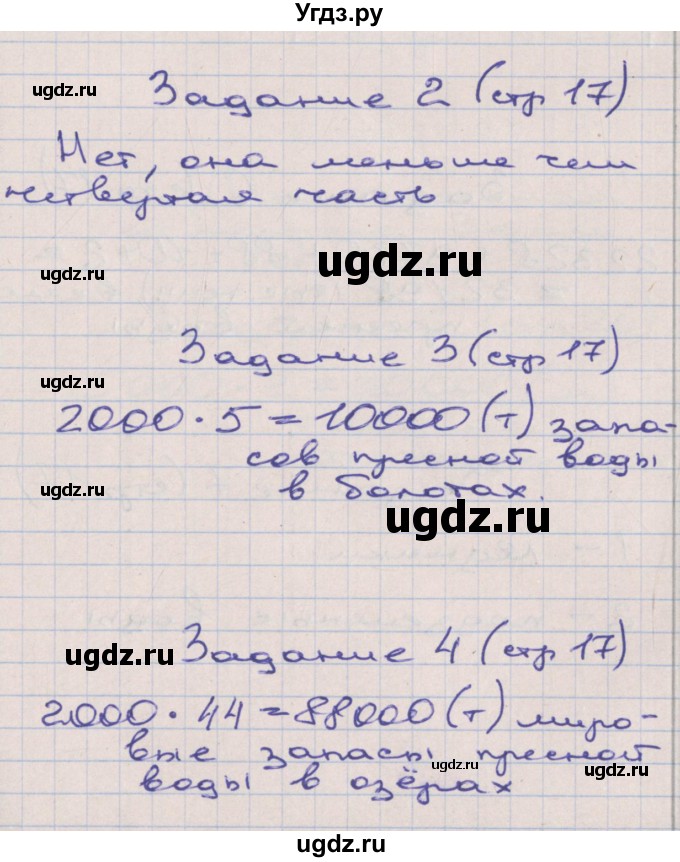 Угдз.ру
ugdz.ru
Задание 2 (стр 17)
Нет, она меньше чем
четвертая часть
ugdz.ru
ugdz.ru
Задание 3 (стр 17)
ugdz.ru
2000 · 5 = 10000 (т) запа-
сов пресной воды
ugdz.ru
в болотах.
ugdz.ru
Задание 4 (стр 17)
ugdz.ru
2000 · 44 = 88000 (т) миро-
вые запасы пресной
ugdz.ru
ugdz.ru
воды в озёрах
ugdz.ru